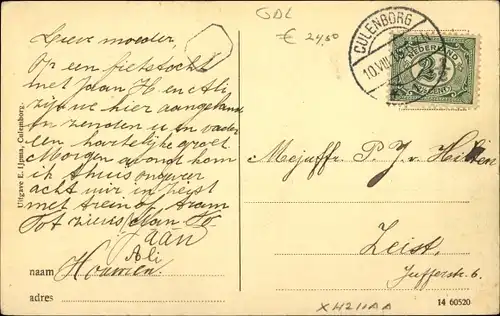 GDL
€ 24,50
CULENBORG
10.VIII
NEDERLAND
2½
CENT
Lieve moeder,
Op een fietstocht
met Jaan H en Ali,
zijn we hier aangeland
en zenden u en vader
een hartelijke groet
Morgen avond kom
ik thuis ongeveer
acht uur in Zeist
met trein of tram
Tot ziens
Jaan
Ali
naam Houmen.
adres
Uitgave E. IJpma, Culenborg.
Mejuffr. P. J. v.
Zeist,
Jufferstr. 6.
14 60520
XH211AA